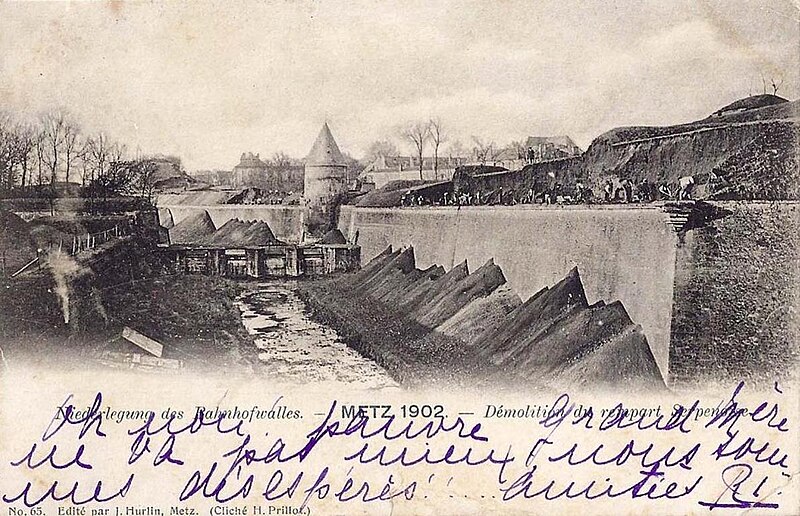 Niederlegung des Bahnhofwalles. – METZ 1902. – Démolition du rempart Serpenoise
Oh non pauvre Grand Mère
ne va pas mieux & nous som
mes désespérés!! ... amitiés
No. 65. Edité par J. Hurlin, Metz. (Cliché H. Prillot.)